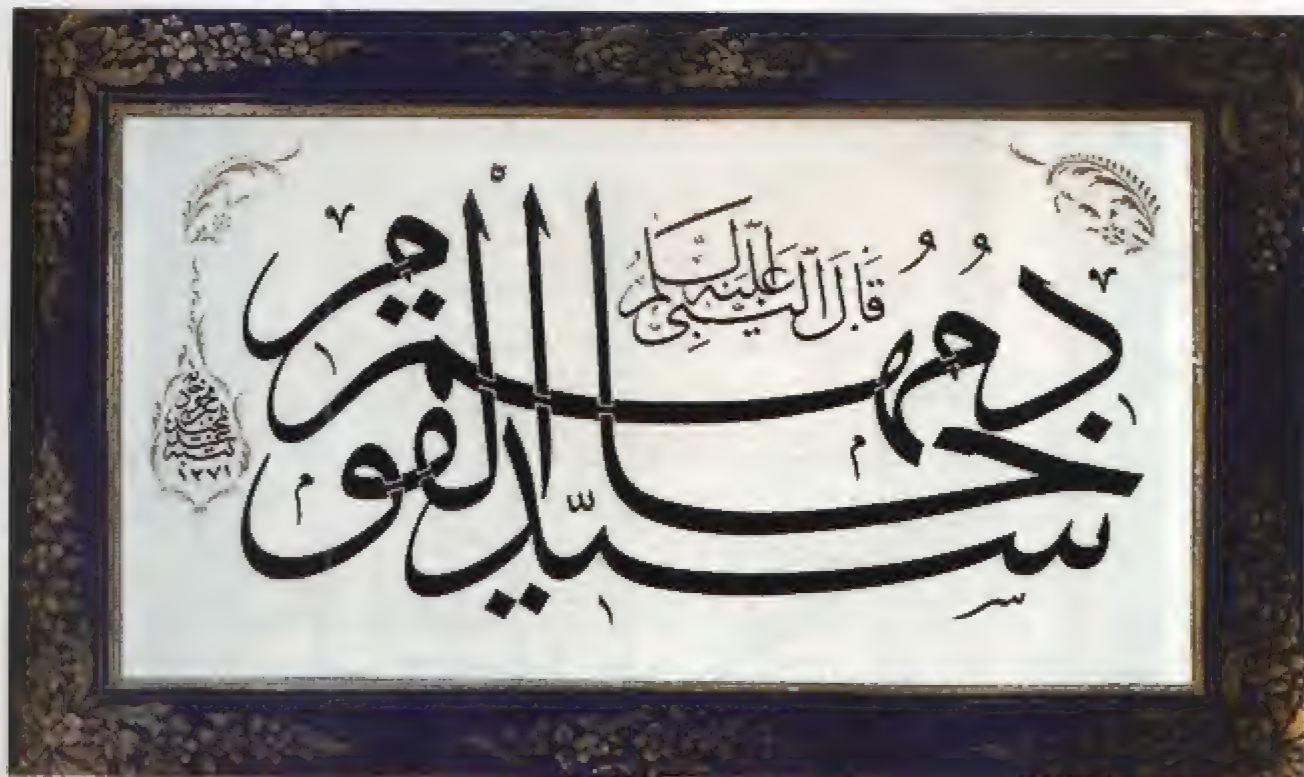 قَالَ النَّبِيُّ عَلَيْهِ السَّلَامُ
سيّد القوم خادمهم
١٢٧١